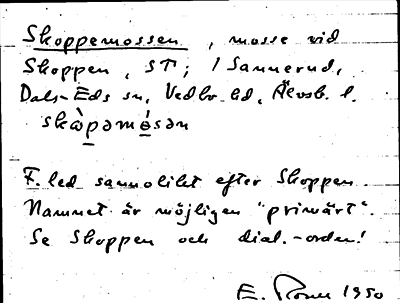 Skoppemossen, mosse vid
Skoppen, sT; i Sannerud,
Dals-Eds sn, Vedbo hd, Älvsb. l.
skὰpəmósən
F. led sannolikt efter Skoppen.
Namnet är möjligen "primärt".
Se Skoppen och dial.-orden!
E. 1950